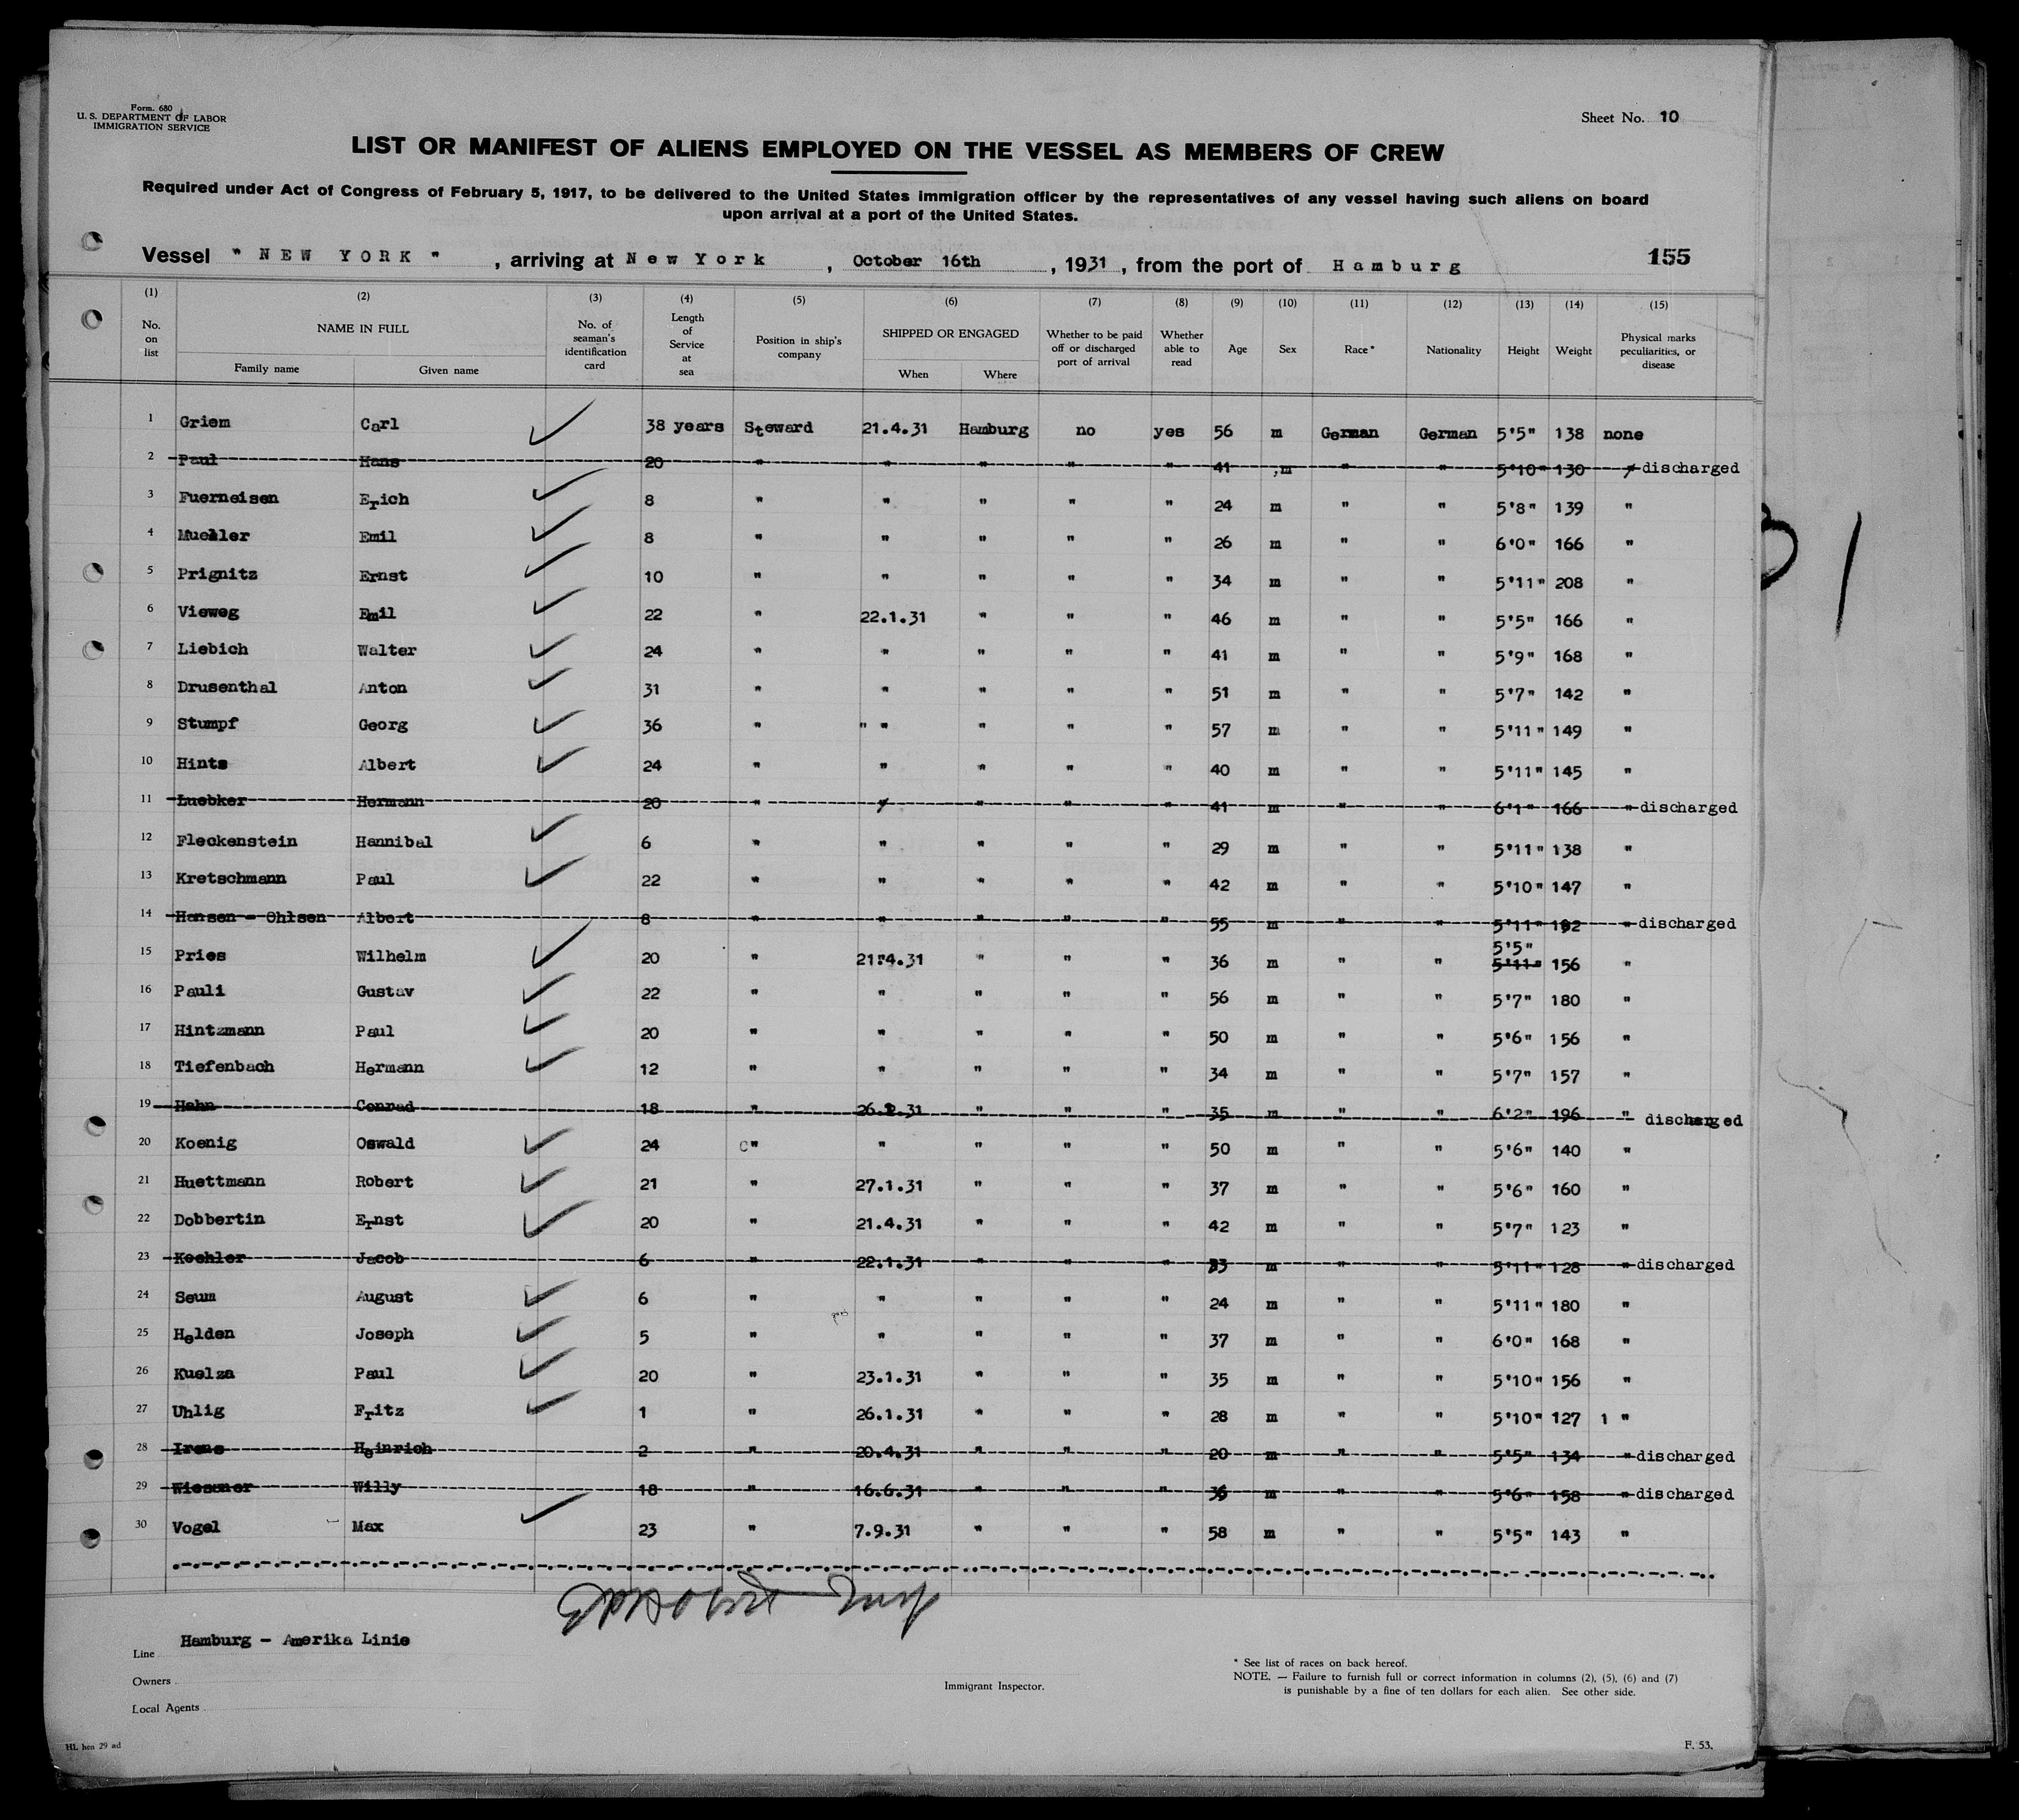 Form. 680
U. S. DEPARTMENT OF LABOR
IMMIGRATION SERVICE
Sheet No. 10
LIST OR MANIFEST OF ALIENS EMPLOYED ON THE VESSEL AS MEMBERS OF CREW
Required under Act of Congress of February 5, 1917, to be delivered to the United States immigration officer by the representatives of any vessel having such aliens on board
upon arrival at a port of the United States.
Vessel " NEW YORK " , arriving at New York , October 16th , 1931 , from the port of Hamburg 155
(1) (2) (3) (4) (5) (6) (7) (8) (9) (10) (11) (12) (13) (14) (15)
No. on list NAME IN FULL Family name Given name No. of seaman's identification card Length of Service at sea Position in ship's company SHIPPED OR ENGAGED When Where Whether to be paid off or discharged port of arrival Whether able to read Age Sex Race* Nationality Height Weight Physical marks peculiarities, or disease
1 Griem Carl 38 years Steward 21.4.31 Hamburg no yes 56 m German German 5'5" 138 none
2 Paul Hans 20 " " " " " 41 m " " 5'10" 130 discharged
3 Fuerneisen Erich 8 " " " " " 24 m " " 5'8" 139 "
4 Mueller Emil 8 " " " " " 26 m " " 6'0" 166 "
5 Prignitz Ernst 10 " " " " " 34 m " " 5'11" 208 "
6 Vieweg Emil 22 " 22.1.31 " " " 46 m " " 5'5" 166 "
7 Liebich Walter 24 " " " " " 41 m " " 5'9" 168 "
8 Drusenthal Anton 31 " " " " " 51 m " " 5'7" 142 "
9 Stumpf Georg 36 " " " " " " 57 m " " 5'11" 149 "
10 Hints Albert 24 " " " " " 40 m " " 5'11" 145 "
11 Luebker Hermann 20 " " " " " 41 m " " 6'1" 166 " discharged
12 Fleckenstein Hannibal 6 " " " " " 29 m " " 5'11" 138 "
13 Kretschmann Paul 22 " " " " " 42 m " " 5'10" 147 "
14 Hansen - Ohlsen Albert 8 " " " " " 55 m " " 5'11" 192 " discharged
15 Pries Wilhelm 20 " 21.4.31 " " " 36 m " " 5'5" 5'11" 156 "
16 Pauli Gustav 22 " " " " " 56 m " " 5'7" 180 "
17 Hintzmann Paul 20 " " " " " 50 m " " 5'6" 156 "
18 Tiefenbach Hermann 12 " " " " " 34 m " " 5'7" 157 "
19 Hahn Conrad 18 " " " " 35 m " " 6'2" 196 " discharged
20 Koenig Oswald 24 " " " " " 50 m " " 5'6" 140 "
21 Huettmann Robert 21 " 27.1.31 " " " 37 m " " 5'6" 160 "
22 Dobbertin Ernst 20 " 21.4.31 " " " 42 m " " 5'7" 123 "
23 Koehler Jacob 6 " 22.1.31 " " " m " " 5'11" 128 " discharged
24 Seum August 6 " " " " " 24 m " " 5'11" 180 "
25 Helden Joseph 5 " " " " " 37 m " " 6'0" 168 "
26 Kuelza Paul 20 " 23.1.31 " " " 35 m " " 5'10" 156 "
27 Uhlig Fritz 1 " 26.1.31 " " " 28 m " " 5'10" 127 1 "
28 Irens Heinrich 2 " 20.4.31 " " " 20 m " " 5'5" 134 " discharged
29 Wiessner Willy 18 " 16.6.31 " " " 36 m " " 5'6" 158 " discharged
30 Vogel Max 23 " 7.9.31 " " " 58 m " " 5'5" 143 "
Line Hamburg - Amerika Linie
Owners
Local Agents
Immigrant Inspector.
* See list of races on back hereof.
NOTE. — Failure to furnish full or correct information in columns (2), (5), (6) and (7)
is punishable by a fine of ten dollars for each alien. See other side.
HL hen 29 ad
F. 53.